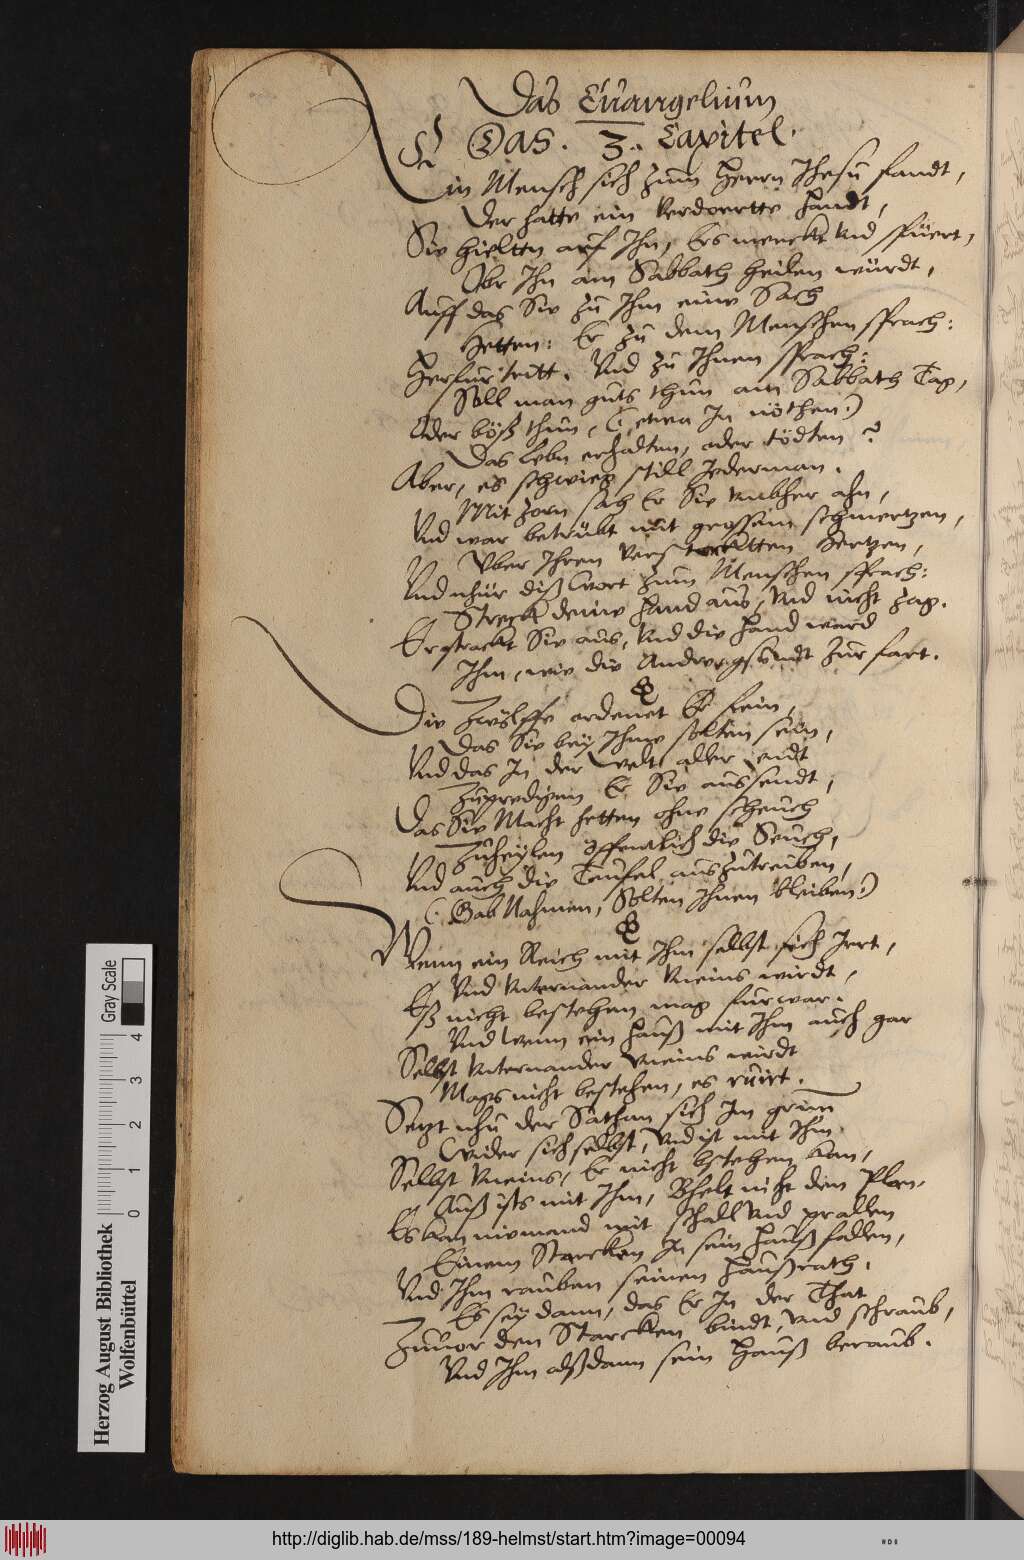 Das Euangelium
Das . 3. Capitel.
Ein Mensch sich zum Herrn Jhesu fandt,
Der hatte ein verdorrtte Handt,
Sie hieltten auf Jhn, Ers merckt vnd spüert,
Obr Jhn am Sabbath heilen würdt,
Auff das Sie zu Jhm eine Sach
Hetten: Er zu dem Menschen sprach:
Herfur tritt. Vnd zu Jhnen sprach:
Soll man guts thun am Sabbath Tag,
Oder böß thun, (: etwa Jn nöthen:)
Das Lebn erhalten, oder tödten ?
Aber, es schwieg still Jederman.
Mit Zorn sach Er Sie vmbher ahn,
Vnd war betrübt mit grossem schmertzen,
Vber Jhren verstocktten Hertzen,
Vnd nhür diß Wort zum Menschen sprach:
Streck deine Hand aus, Vnd nicht zag.
Er strackt Sie aus, Vnd die Hand ward
Jhm, wie die Andere gsundt zur fart.
Die Zwölffe ordenet Er fein,
Das Sie bey Jhme solten sein,
Vnd das Jn der Welt aller endt
Zupredigen Er Sie aussendt,
Das Sie Macht hetten ohne scheuch
Zuheylen öffentlich die Seuch,
Vnd auch die Teufel auszutreiben,
(: Gab Nahmen, Solten Jhnen bleiben:)
Wenn ein Reich mit Jhm selbst sich Jrrt,
Vnd Vnternander Vneins wirdt,
Eß nicht bestehen mag furwar.
Vnd wenn ein Hauß mit Jhm auch gar
Selbst Vnternander Vneins wirdt
Mags nicht bestehen, es ruirt.
Setzt nhu der Sathan sich Jm grim
Wider sich selbst, Vnd ist mit Jhm
Selbst Vneins, Er nicht bstehen kan,
Auß ists mit Jhm, Bhelt nicht den Plan.
Es kan niemand mit schall Vnd prallen
Einem Starcken Jn sein Hauß fallen,
Vnd Jhm rauben seinen Haußrath,
Es sey dann, das Er Jn der That
Zuuor den Starcken bindt, Vnd schraub,
Vnd Jhm alßdann sein Hauß beraub.
Herzog August Bibliothek
Wolfenbüttel
0 1 2 3 4
Gray Scale
http://diglib.hab.de/mss/189-helmst/start.htm?image=00094